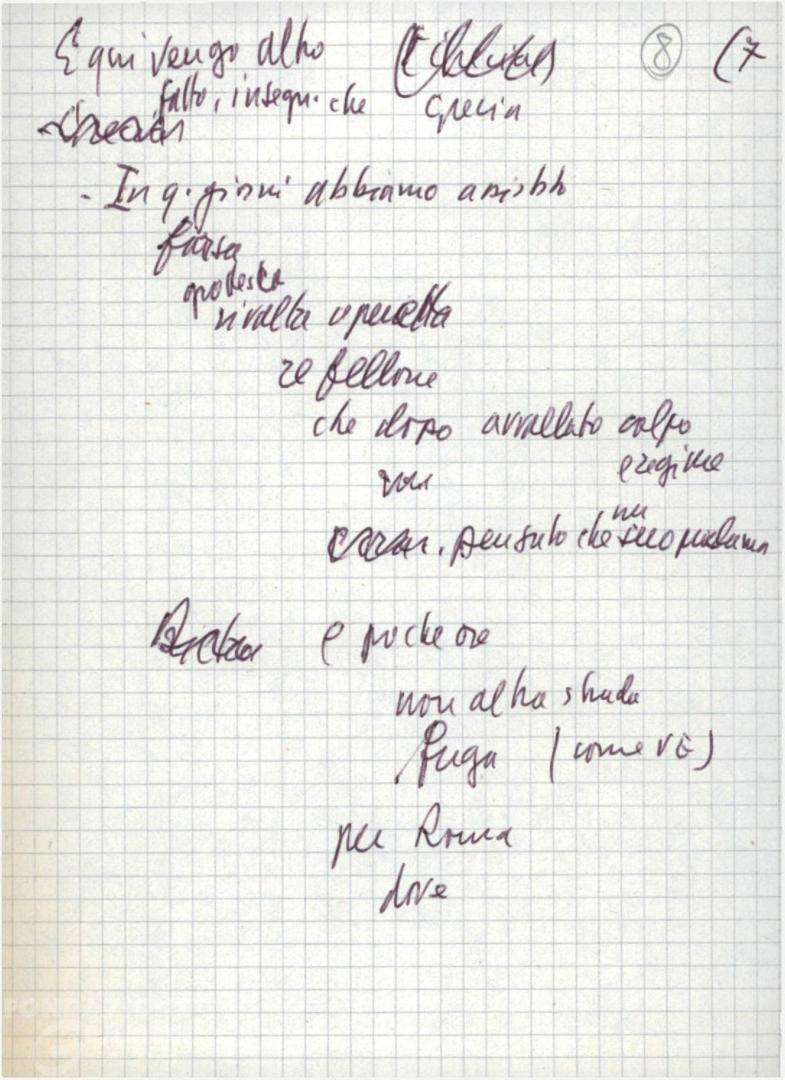 E qui vengo altro ⑧ (7
fatto, insegn. che Grecia
- In q. giorni abbiamo assistito
farsa
grottesca
rivolta operetta
re fellone
che dopo avallato colpo
e regime
pensato che
e poche ore
non altra strada
fuga (come VE)
per Roma
dove